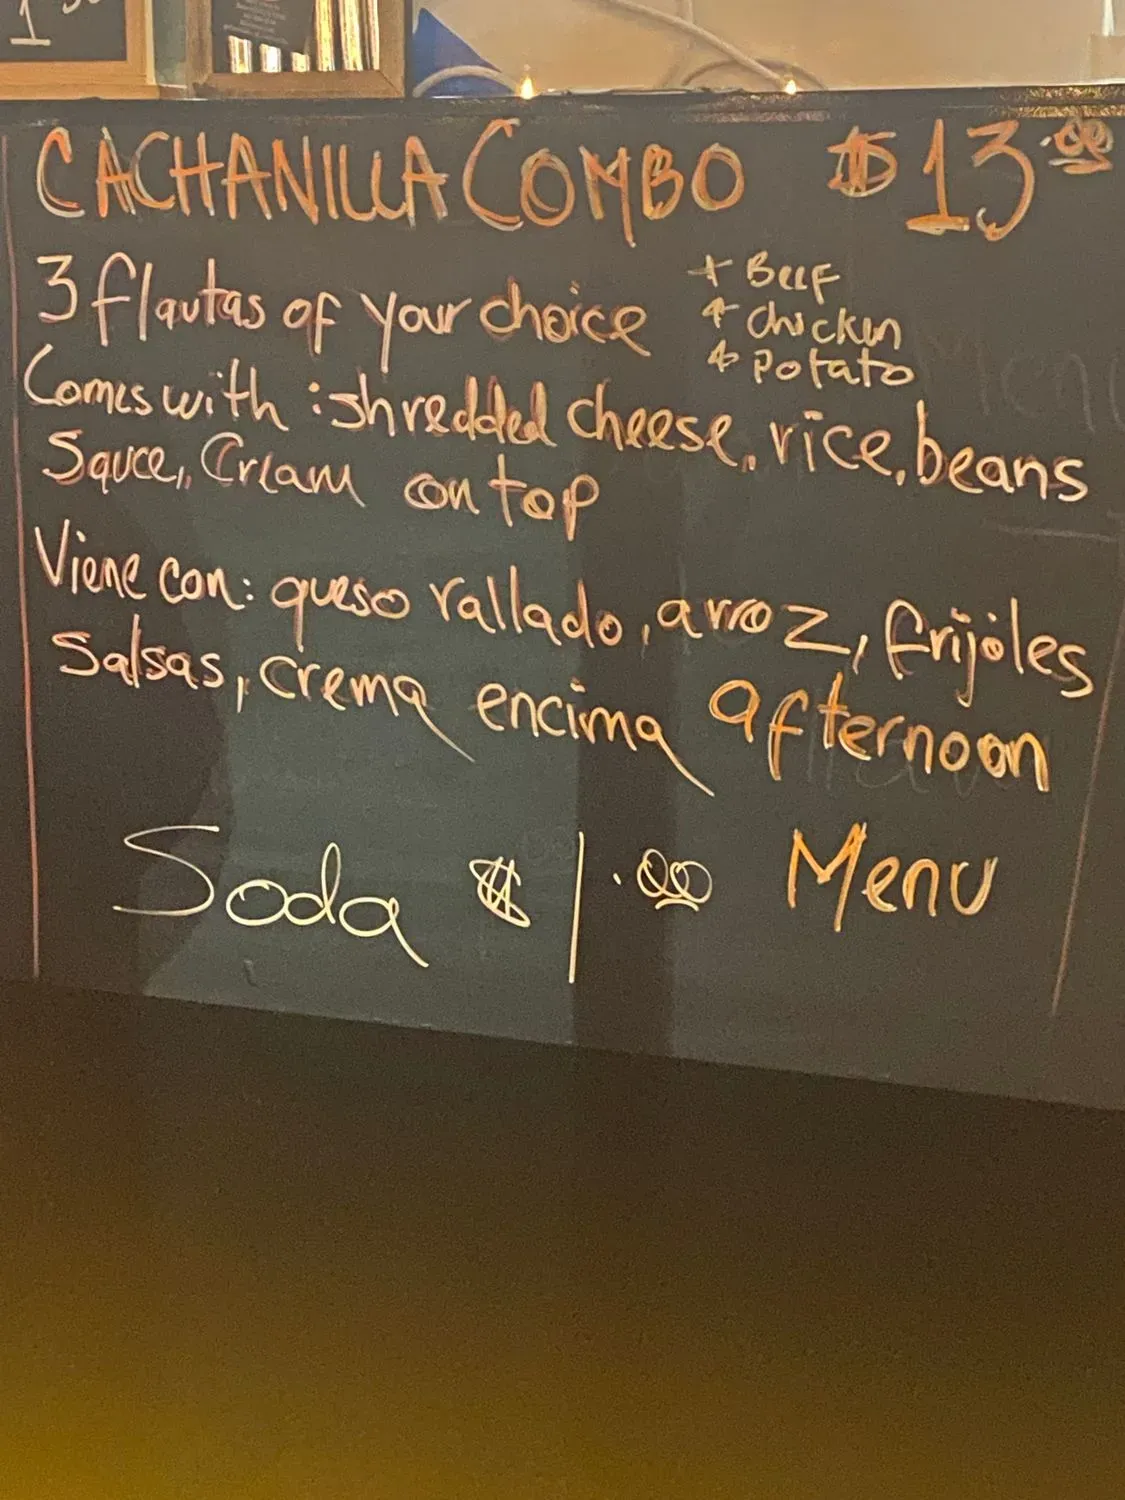 CACHANILLA COMBO $13.00
3 flautas of your choice
+ Beef
+ chicken
+ potato
Comes with : shredded cheese, rice, beans
Sauce, Cream on top
Viene con: queso rallado, arroz, frijoles
Salsas, crema encima afternoon
Soda $1.00 Menu